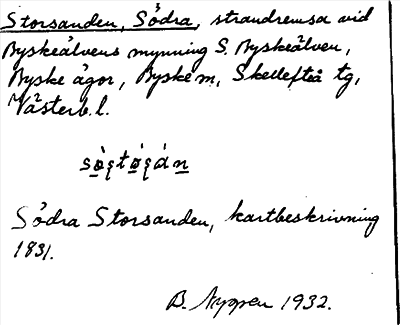 Storsanden, Södra, strandremsa vid
Byskeälvens mynning S. Byskeälven,
Byske ägor, Byske sn, Skellefteå tg,
Västerb. l.
Södra Storsanden, kartbeskrivning
1831.
B. Nygren 1932.